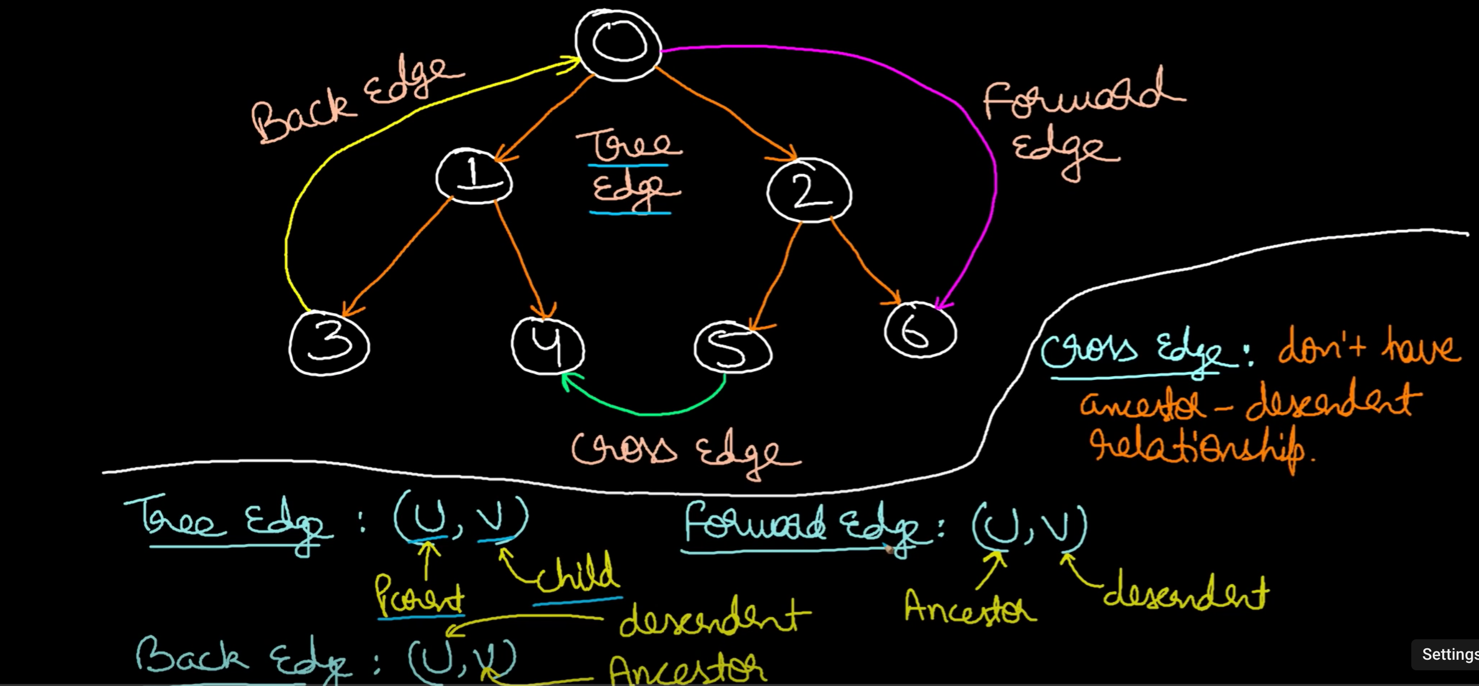 0
Back Edge
Forward
Edge
Tree
Edge
1
2
3
4
5
6
Cross Edge
Cross Edge: don't have
ancestor - desendent
relationship.
Tree Edge : (U, V)
Parent
child
Forward Edge: (U, V)
Ancestor
desendent
Back Edge : (U, V)
desendent
Ancestor
Settings